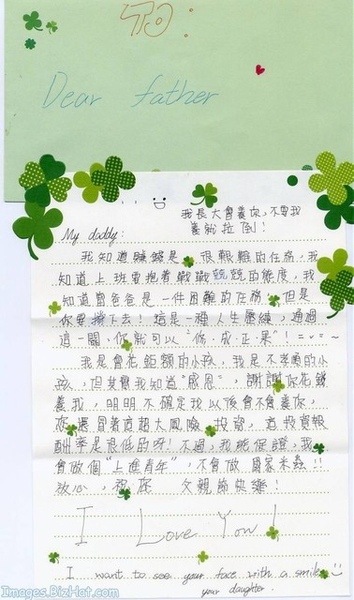 To:
Dear father
我長大會養你，不要我
養就拉倒！
My daddy:
我知道賺錢是 很艱難的任務，我
知道上班要抱著戰戰兢兢的態度，我
知道當爸爸是一件困難的任務，但是
你要撐下去！這是一種人生歷練，通過
這一關，你就可以"修成正果"！=v=~
我是會花鉅額的小孩，我是不孝順的小
孩，但其實我知道"感恩"，謝謝你花錢
養我，明明不確定我以後會不會養你，
你還冒著這超大風險 投資，這投資報
酬率是很低的呀！不過，我能保證，我
會做個"上進青年"，不會做 國家米蟲！！
放心，祝你 父親節快樂！
I Love You!
I want to see your face with a smile
your daughter.
Images.BizHat.com